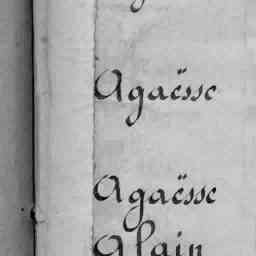 Agaësse
Agaësse
Alain